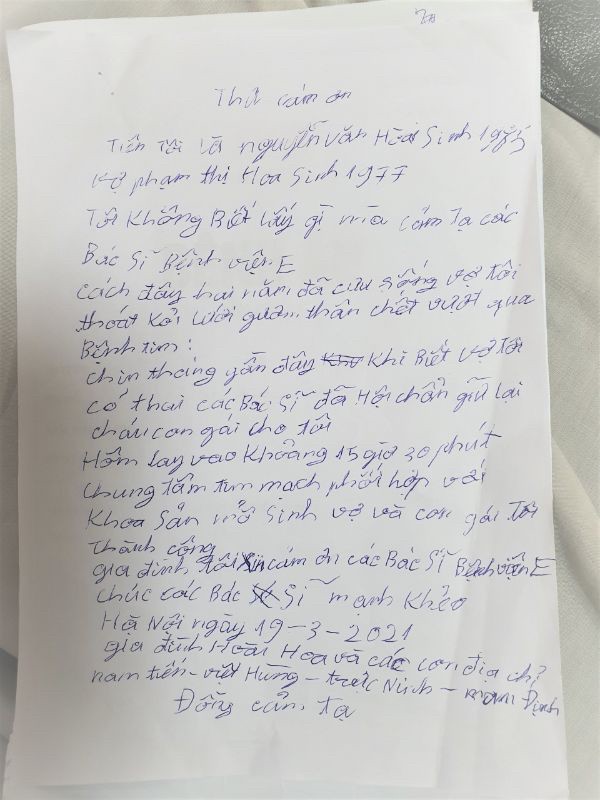 Thư cám ơn
Tiên Tôi là nguyễn văn Hoài Sinh
vợ phạm thị Hoa Sinh 1977
Tôi Không Biết lấy gì mà cám tạ các
Bác Sĩ Bệnh viện E
cách đây hai năm đã cưu sống vợ tôi
thoát Kỏi lưỡi gươm thần chết vượt qua
Bệnh tim:
chín tháng gần đây Khi Biết vợ tôi
có thai các Bác Sĩ đã Hội chẩn giữ lại
cháu con gái cho tôi
Hôm lay vao Khoảng 15 giờ 30 phút
chung tâm tim mạch phối hợp với
Khoa Sản mở Sinh vợ và con gái Tôi
thành công
gia đình tôi xin cám ơn các Bác Sĩ Bệnh viện E
chúc các Bác Sĩ mạnh Khẻo
Hà Nội ngày 19-3-2021
gia đình Hoài Hoa và các con địa chỉ
nam tiến - việt Hùng - trực Ninh - nam Định
Đồng cảm tạ